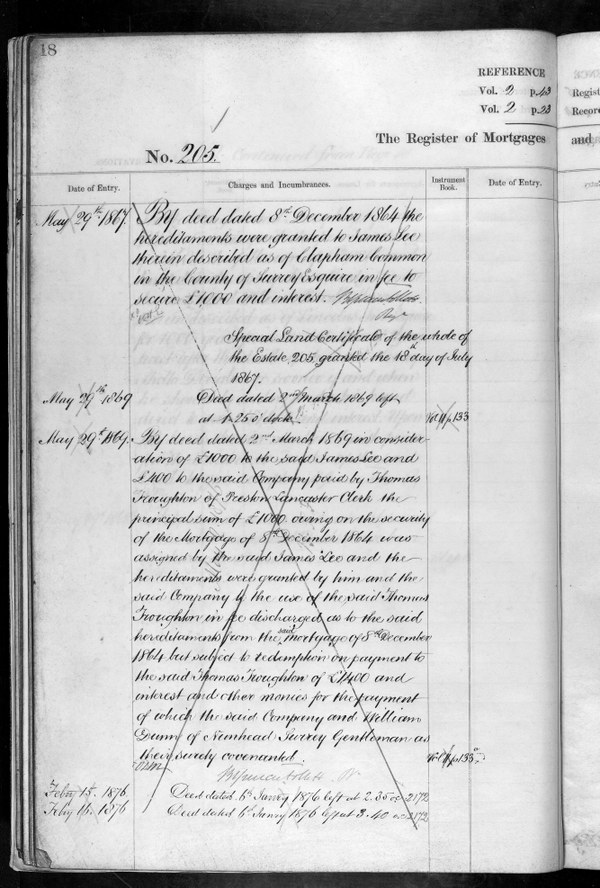 18
REFERENCE
Vol. 2 p. 43
Vol. 2 p. 23
The Register of Mortgages and
Regist
Recor
No. 205.
Date of Entry.
Charges and Incumbrances.
Instrument Book.
Date of Entry.
May 29th 1867. By deed dated 8th December 1864 the
hereditaments were granted to James Lee
therein described as of Clapham Common
in the County of Surrey Esquire in fee to
secure £1000 and interest.
Special Land Certificate of the whole of
the Estate 205 granted the 18th day of July
1867.
May 29th 1869 Deed dated 2nd March 1869 left
at 1.25 o'clock Vol. p 133
May 29th 1869. By deed dated 2nd March 1869 in consider-
ation of £1000 to the said James Lee and
£400 to the said Company paid by Thomas
Troughton of Preston Lancaster Clerk the
principal sum of £1000 owing on the security
of the Mortgage of 8th December 1864 was
assigned by the said James Lee and the
hereditaments were granted by him and the
said Company to the use of the said Thomas
Troughton in fee discharged as to the said
hereditaments from the said Mortgage of 8th December
1864 but subject to redemption on payment to
the said Thomas Troughton of £1400 and
interest and other monies for the payment
of which the said Company and William
Dunn of Surrey Gentleman as
their surety covenanted. Vol. p. 133
Feby 15. 1876 Deed dated 6th Janry 1876 left at 2.35 2172
Feby 16. 1876 Deed dated 6th Janry 1876 left at 3.40 2172